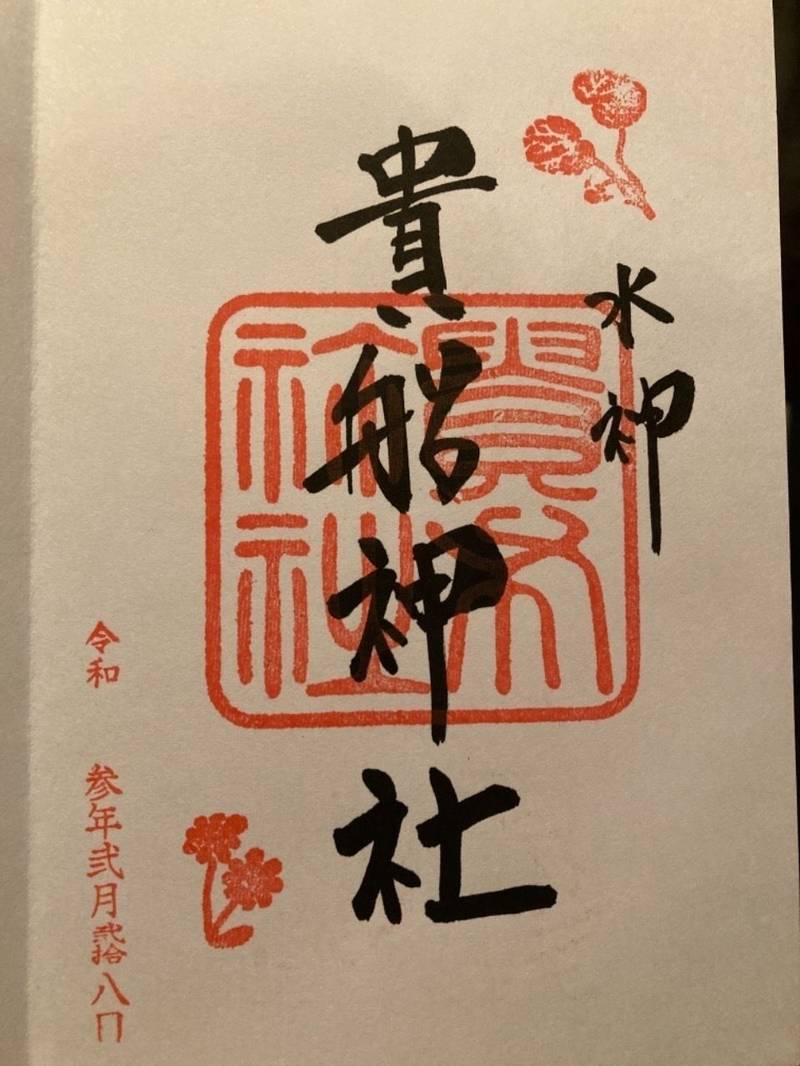 水神
貴船神社
令和 参年弐月弐拾八日